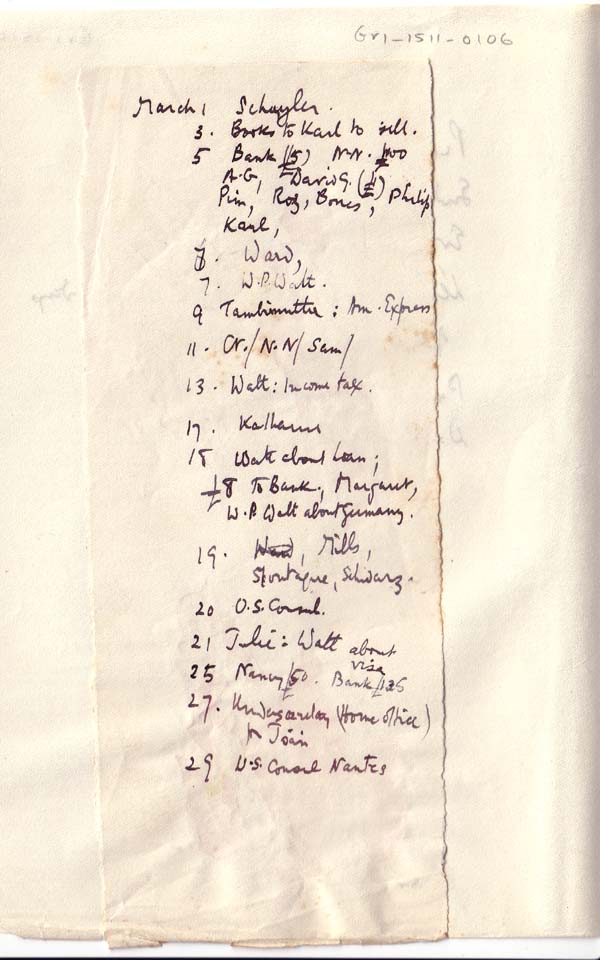 Gr1-1511-0106
March 1 Schuyler.
3. Books to Karl to sell.
5 Bank £5) N.N. £100
A.G, David G. (£1)
Pim, Roz, Bones, Philip
Karl,
6. Ward,
7. W.P. Watt.
9 Tambimuttu : Am. Express
11. Cr./ N.N/ Sam/
13. Watt: Income tax.
17. Katharine
18 Watt about loan;
£8 To Bank., Margaret,
W.P. Watt about Germany.
19. Ward, Mills,
Montague, Schwarz.
20 U.S. Consul.
21 Julie: Watt about
visa
25 Nancy £50. Bank £125
27. Undersecretary (Home Office)
Join
29 U.S. Consul Nantes